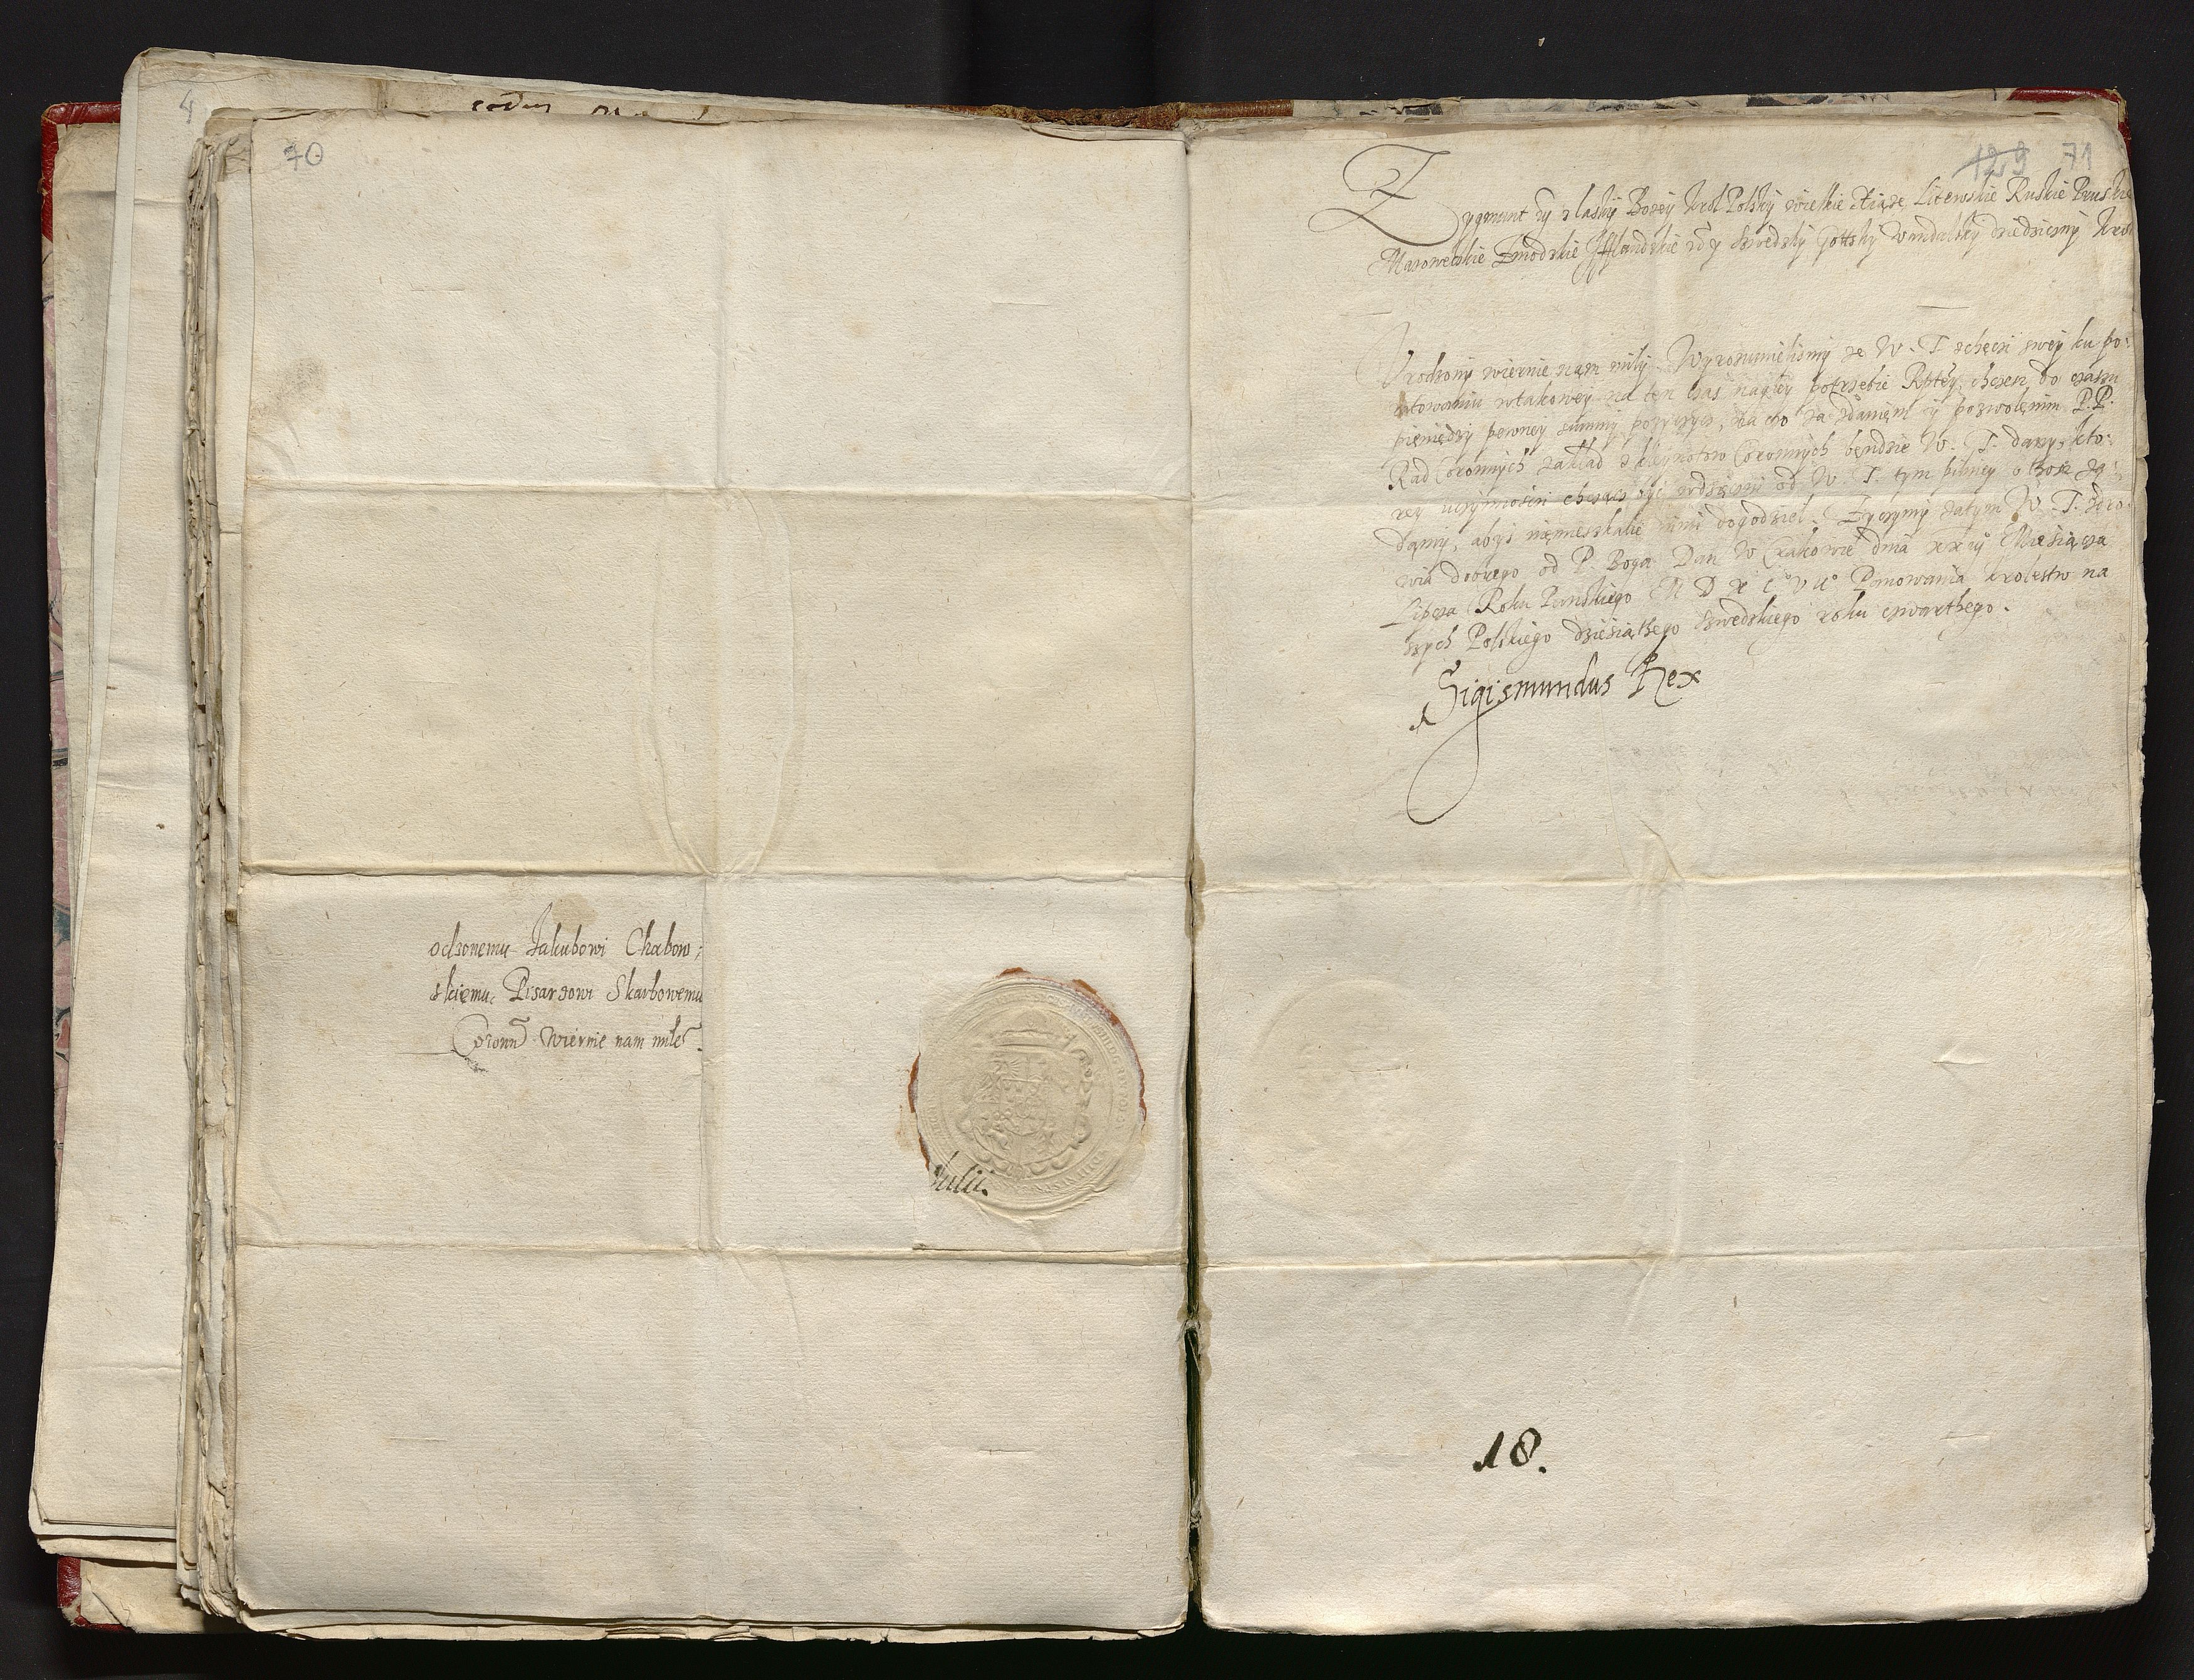 70
odzonemu Jakubowi Chabow:
skiemu Pisarzowi Skarbowemu
Coronn Wiernie nam miłe
Julii.
4
129 71
Zygmunt z łaski Bozey Krol Polsky wielkie Xiąże Litewskie Ruskie Pruskie
Mazoweckie Zmodzkie Ifflandskie Szwedsky Gottsky Wandalsky dziedziczny Krol
Vrodzony wiernie nąm miły. Wyrozumielismy że W. T. z chęczi swey ku po:
ratowaniu w takowey na ten czas nagłey potrzebie Rptey, chcesz do czasu
pieniędzy pewney summy pozyczyc, na czo za zdaniem y pozwolęnim P.P.
Rad Coronnych zakład z kleynotow Coronnych bęndzie W. T. dany, kto:
rey uczynnosczi chcącz być wdzięczni od W. T. tym pilney o thosz żą:
dąmy, abys niemieszkalie nimi dogodził. Zyczymy zatym W. T. zdro:
wia dobrego od P. Boga Dan W Crakowie dnia xxiij Miesiącza
Lipcza Roku Panskiego M D X C° v ii° Panowania krolestw na
szych Polskiego dziesiąthego szwedzkiego roku czwarthego.
Sigismundus Rex
18.